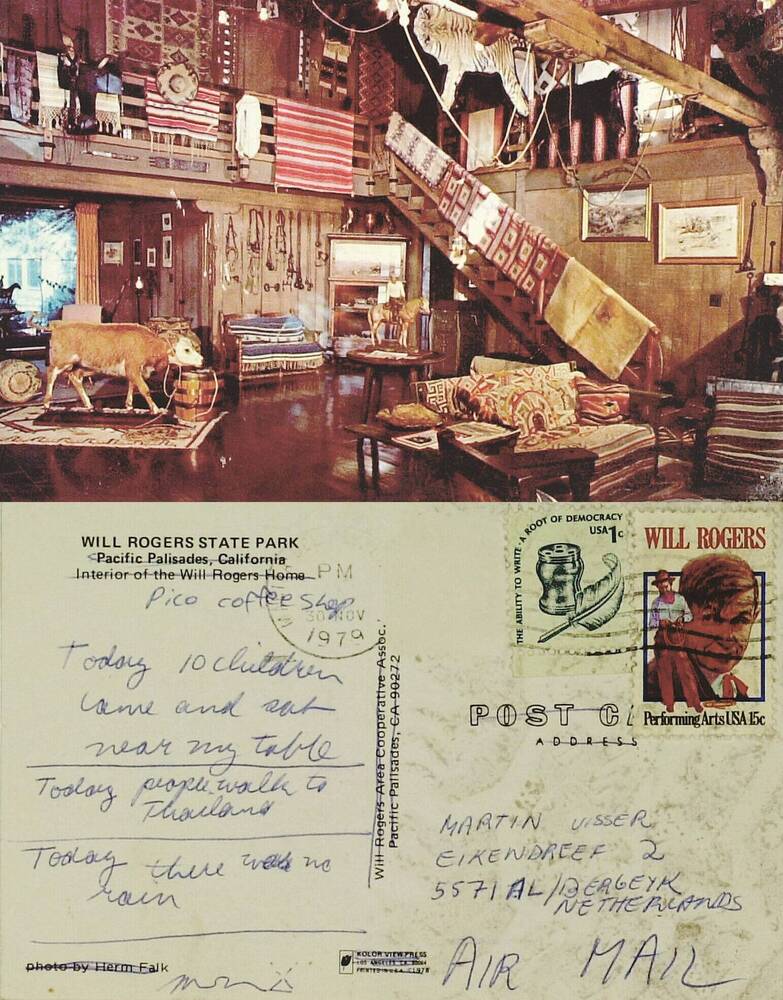 WILL ROGERS STATE PARK
Pacific Palisades, California
Interior of the Will Rogers Home
Pico coffee shop
PM
30 NOV
1979
Today 10 children
came and sat
near my table
Today people walk to
Thailand
Today there was no
rain
photo by Herm Falk
Will Rogers Area Cooperative Assoc.
Pacific Palisades, CA 90272
KOLOR VIEW PRESS
LOS ANGELES, CA
PRINTED IN U.S.A. C1978
THE ABILITY TO WRITE · A ROOT OF DEMOCRACY
USA 1c
WILL ROGERS
Performing Arts USA 15c
POST
ADDRESS
MARTIN VISSER
EIKENDREEF 2
5571 AL/BERGEYK
NETHERLANDS
AIR MAIL